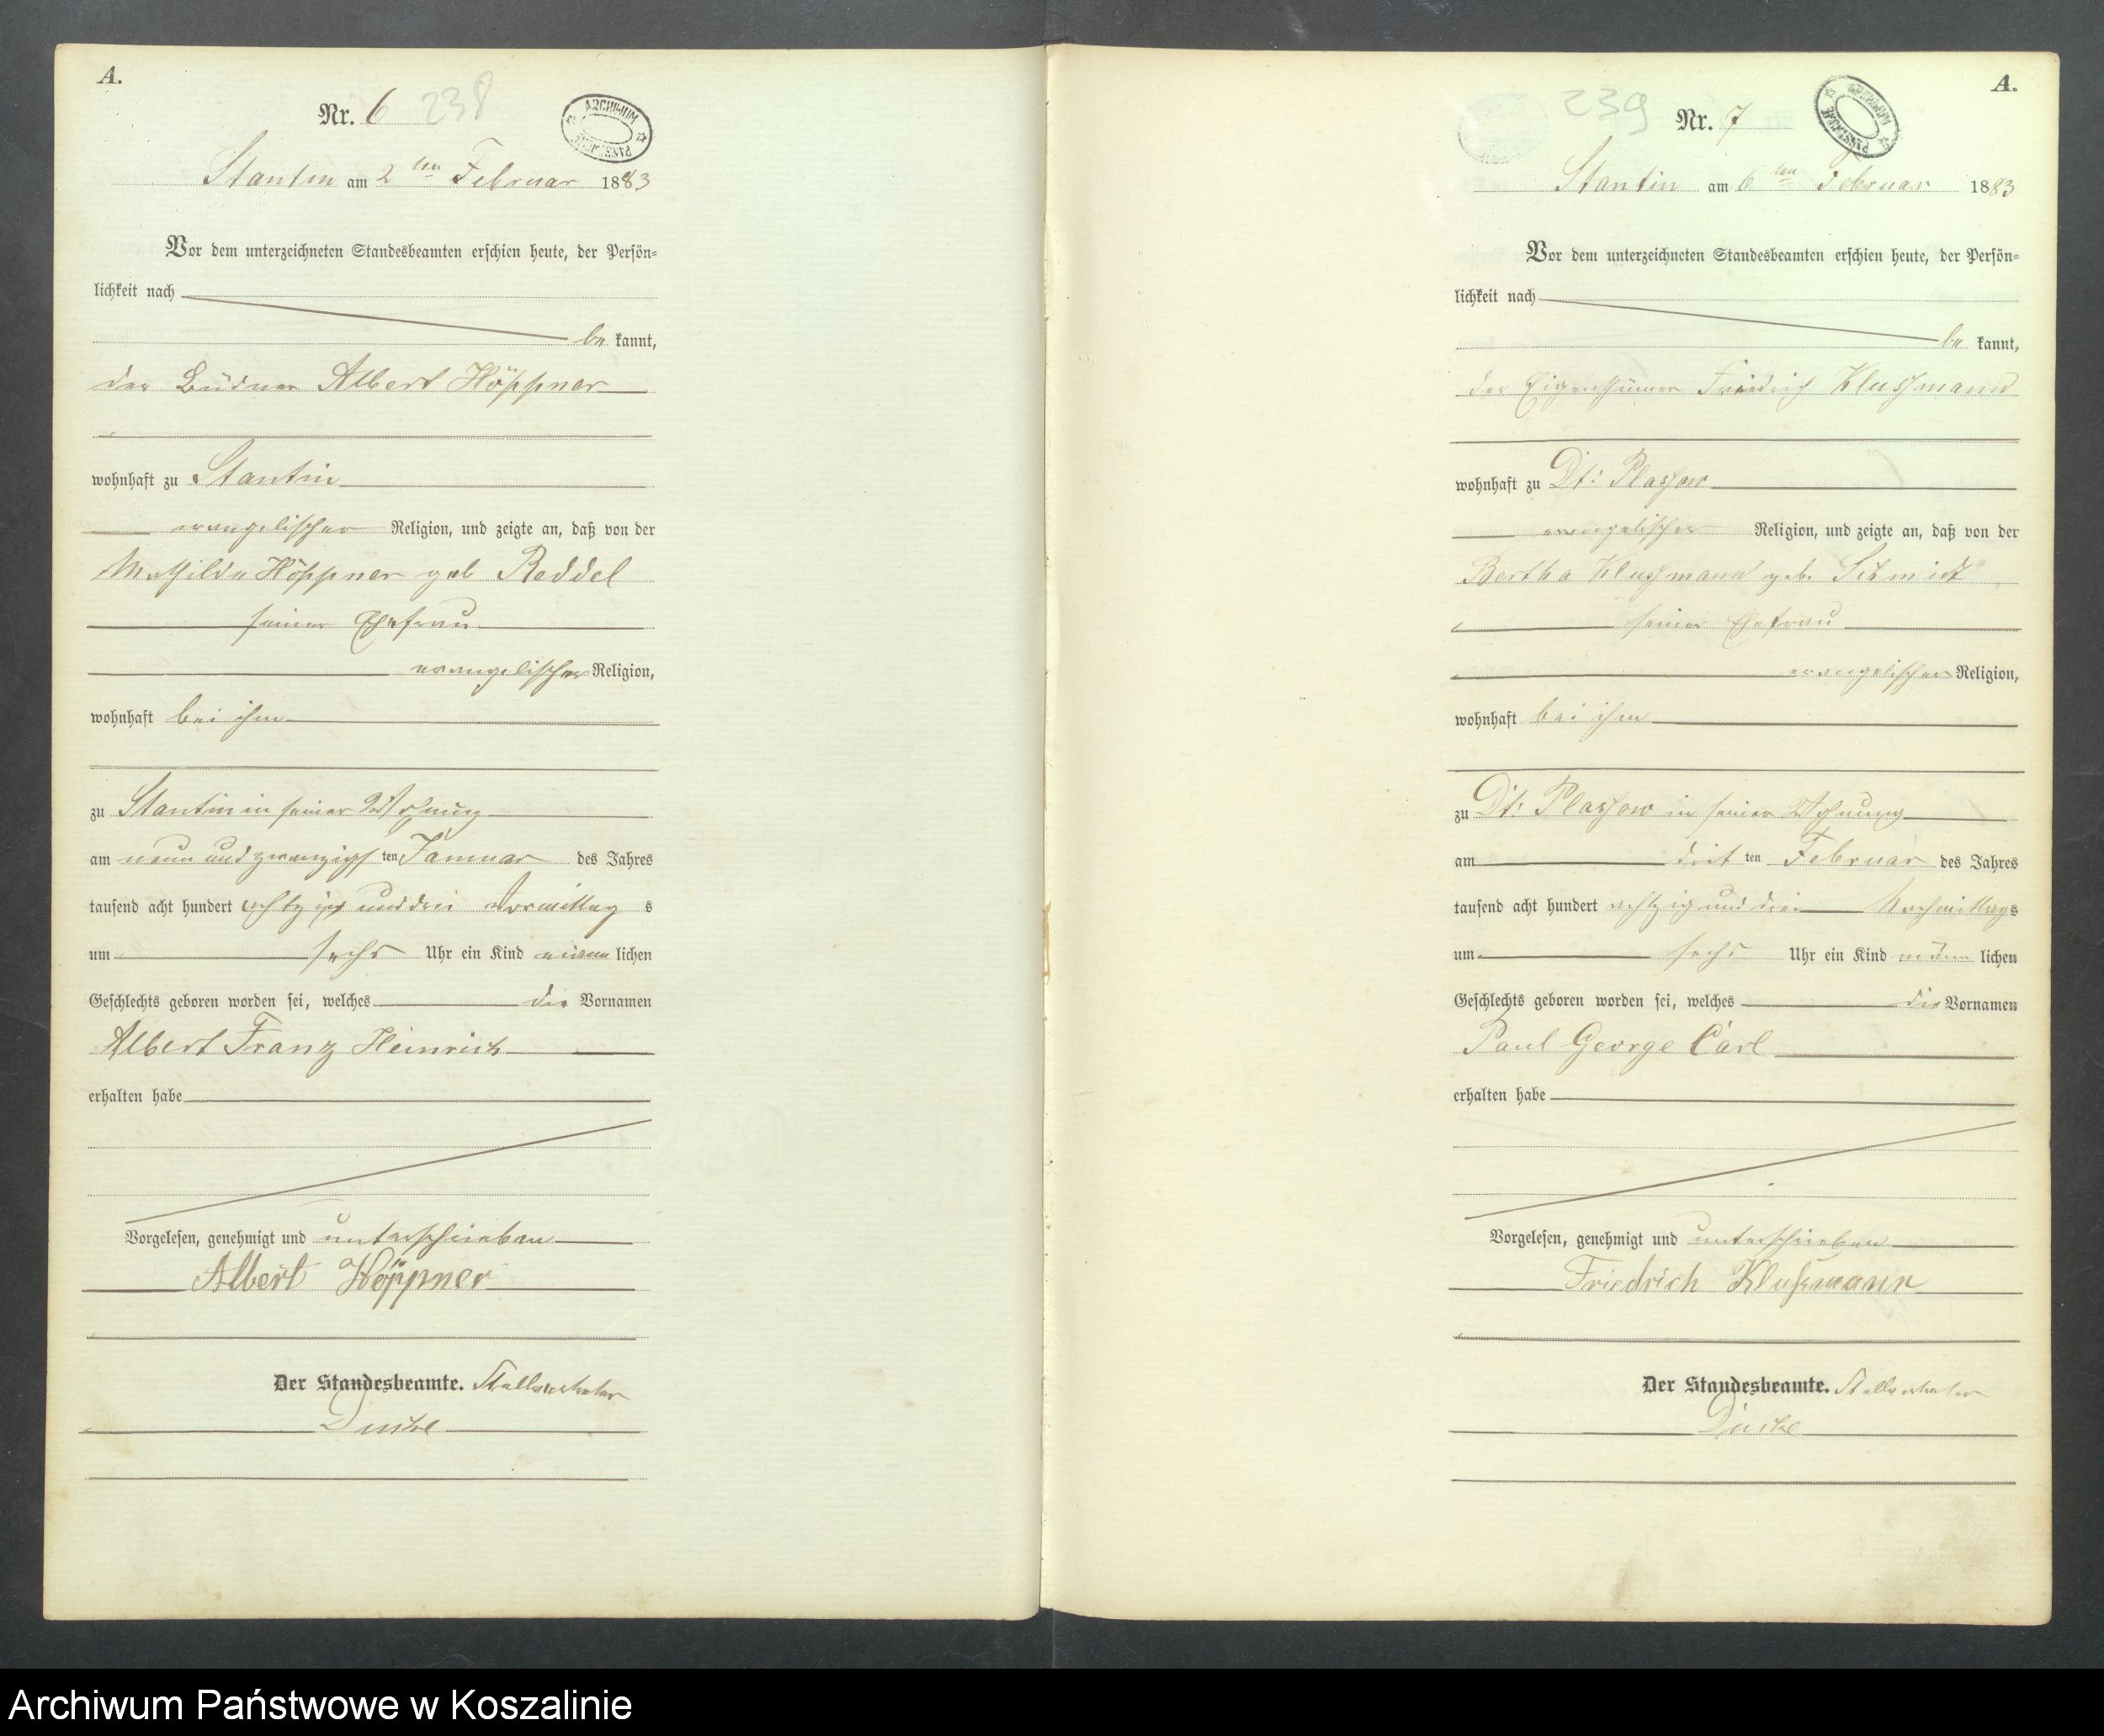 A.
Nr. 6 238
ARCHIWUM PAŃSTWOWE
Stantin am 2ten Februar 1883
Vor dem unterzeichneten Standesbeamten erschien heute, der Persön=
lichkeit nach
be kannt,
der Büdner Albert Höppner
wohnhaft zu Stantin
evangelischer Religion, und zeigte an, daß von der
Mathilde Höppner geb Reddel
seiner Ehefrau
evangelischer Religion,
wohnhaft bei ihm
zu Stantin in seiner Wohnung
am neun und zwanzigsten Januar des Jahres
tausend acht hundert achtzig und drei Vormittags
um sechs Uhr ein Kind männlichen
Geschlechts geboren worden sei, welches die Vornamen
Albert Franz Heinrich
erhalten habe
Vorgelesen, genehmigt und unterschrieben
Albert Höppner
Der Standesbeamte. Stellvertreter
A.
239 Nr. 7
Stantin am 6ten Februar 1883
Vor dem unterzeichneten Standesbeamten erschien heute, der Persön=
lichkeit nach
be kannt,
der Eigenthümer Friedrich Klussmann
wohnhaft zu Dt: Plassow
evangelischer Religion, und zeigte an, daß von der
Bertha Klussmann geb. Schmidt
seiner Ehefrau
evangelischer Religion,
wohnhaft bei ihm
zu Dt: Plassow in seiner Wohnung
am dritten Februar des Jahres
tausend acht hundert achtzig und drei Nachmittags
um sechs Uhr ein Kind männlichen
Geschlechts geboren worden sei, welches die Vornamen
Paul George Carl
erhalten habe
Vorgelesen, genehmigt und unterschrieben
Friedrich Klußmann
Der Standesbeamte. Stellvertreter
Archiwum Państwowe w Koszalinie